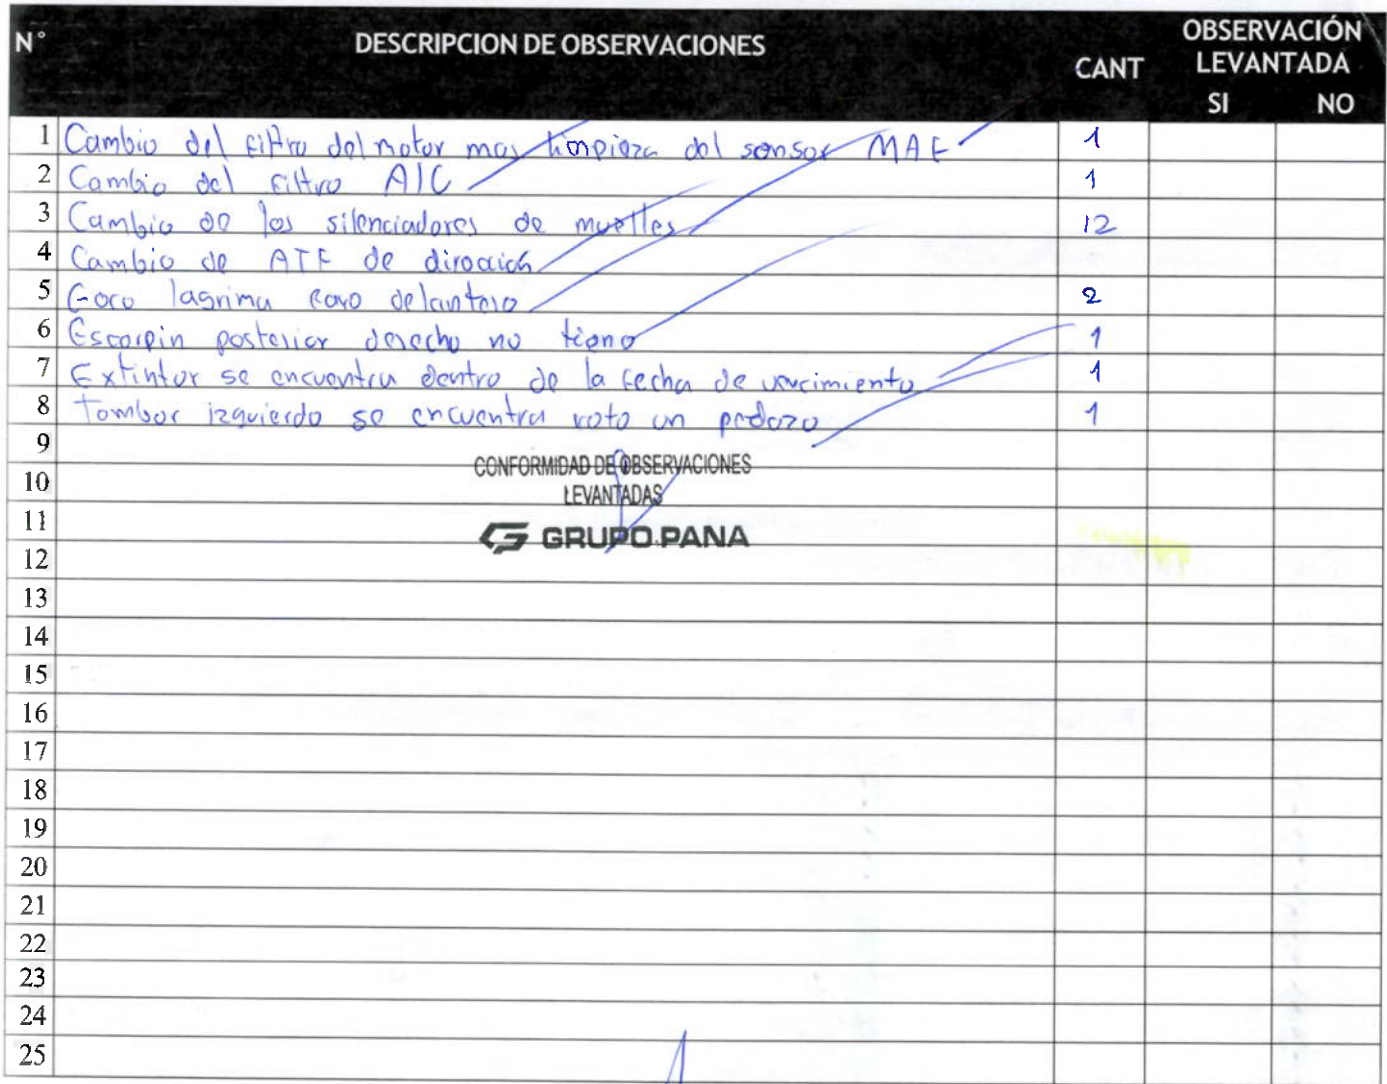 N° DESCRIPCION DE OBSERVACIONES CANT OBSERVACIÓN LEVANTADA SI NO
1 Cambio del filtro del motor mas limpieza del sensor MAF 1
2 Cambio del filtro A/C 1
3 Cambio de los silenciadores de muelles 12
4 Cambio de ATF de dirocción
5 Foco lagrima faro delantero 2
6 Escarpin posterior derecho no tiene 1
7 Extintor se encuentra dentro de la fecha de vencimiento 1
8 Tambor izquierdo se encuentra roto un pedazo 1
9
CONFORMIDAD DE OBSERVACIONES
10
LEVANTADAS
11
GRUPO PANA
12
13
14
15
16
17
18
19
20
21
22
23
24
25